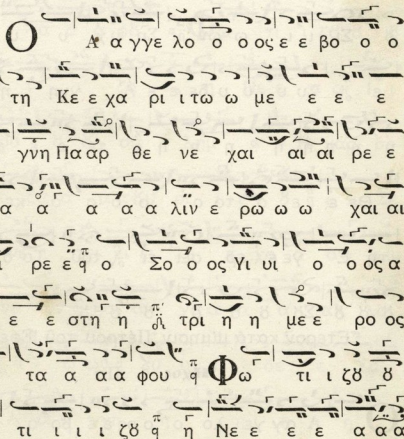 Ο Α α γγε λο ο ο ος ε ε βο ο ο
τη Κε ε χα ρι ι τω ω με ε ε ε
γνη Πα αρ θε νε χαι αι αι ρε ε
α α α α α λιν ε ρω ω ω χαι αι
ρε ε ο Σο ο ος Υι υι ο ο ος α
ε ε στη η τρι η η με ε ρο ος
τα α α α φου Φω τι ι ζȣ ȣ
τι ι ι ι ζȣ η Νε ε ε ε α α α